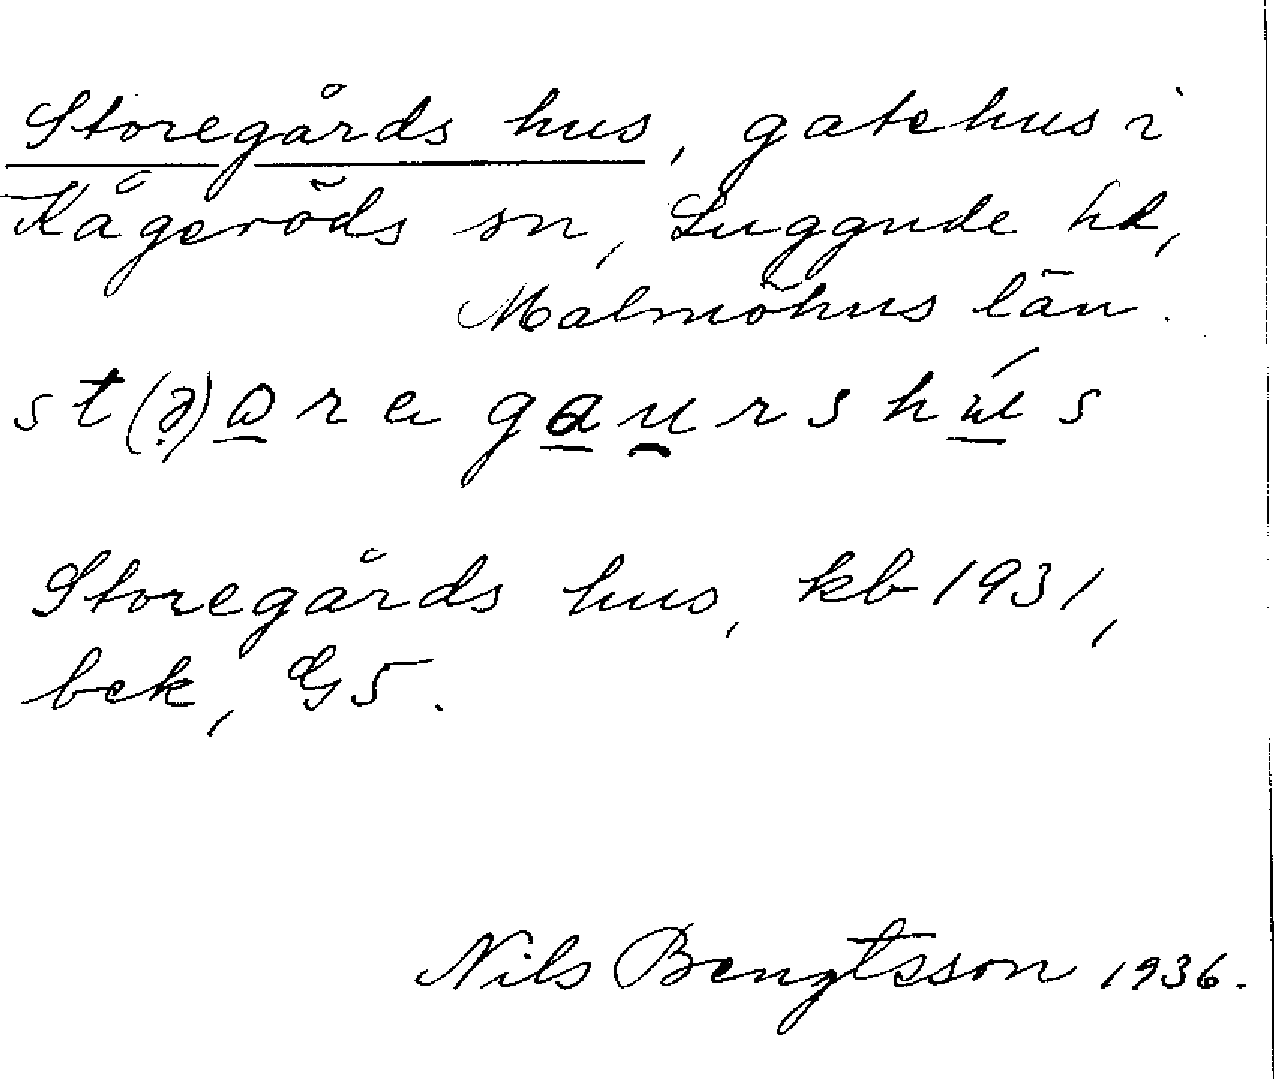 Storegårds hus, gatehus i
Kågeröds sn, Luggude hd,
Malmöhus län.
st(ə)ore gaurshus
Storegårds hus, kb 1931,
bek, G5.
Nils Bengtsson 1936.